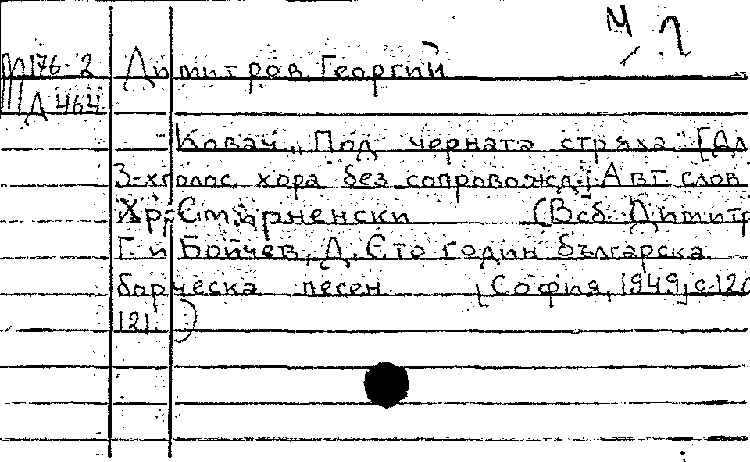 М
1
П176-2 Димитров, Георгий
Д 464
Ковач. „Под черната стряха. [Дл
3-хголос. хора без сопровожд.] Авт. слов
Хр. Смирненски (В сб. Димитр
Г. и Бойчев, Д. Сто годин българска
борческа песен [София, 1949, с. 120
121.)